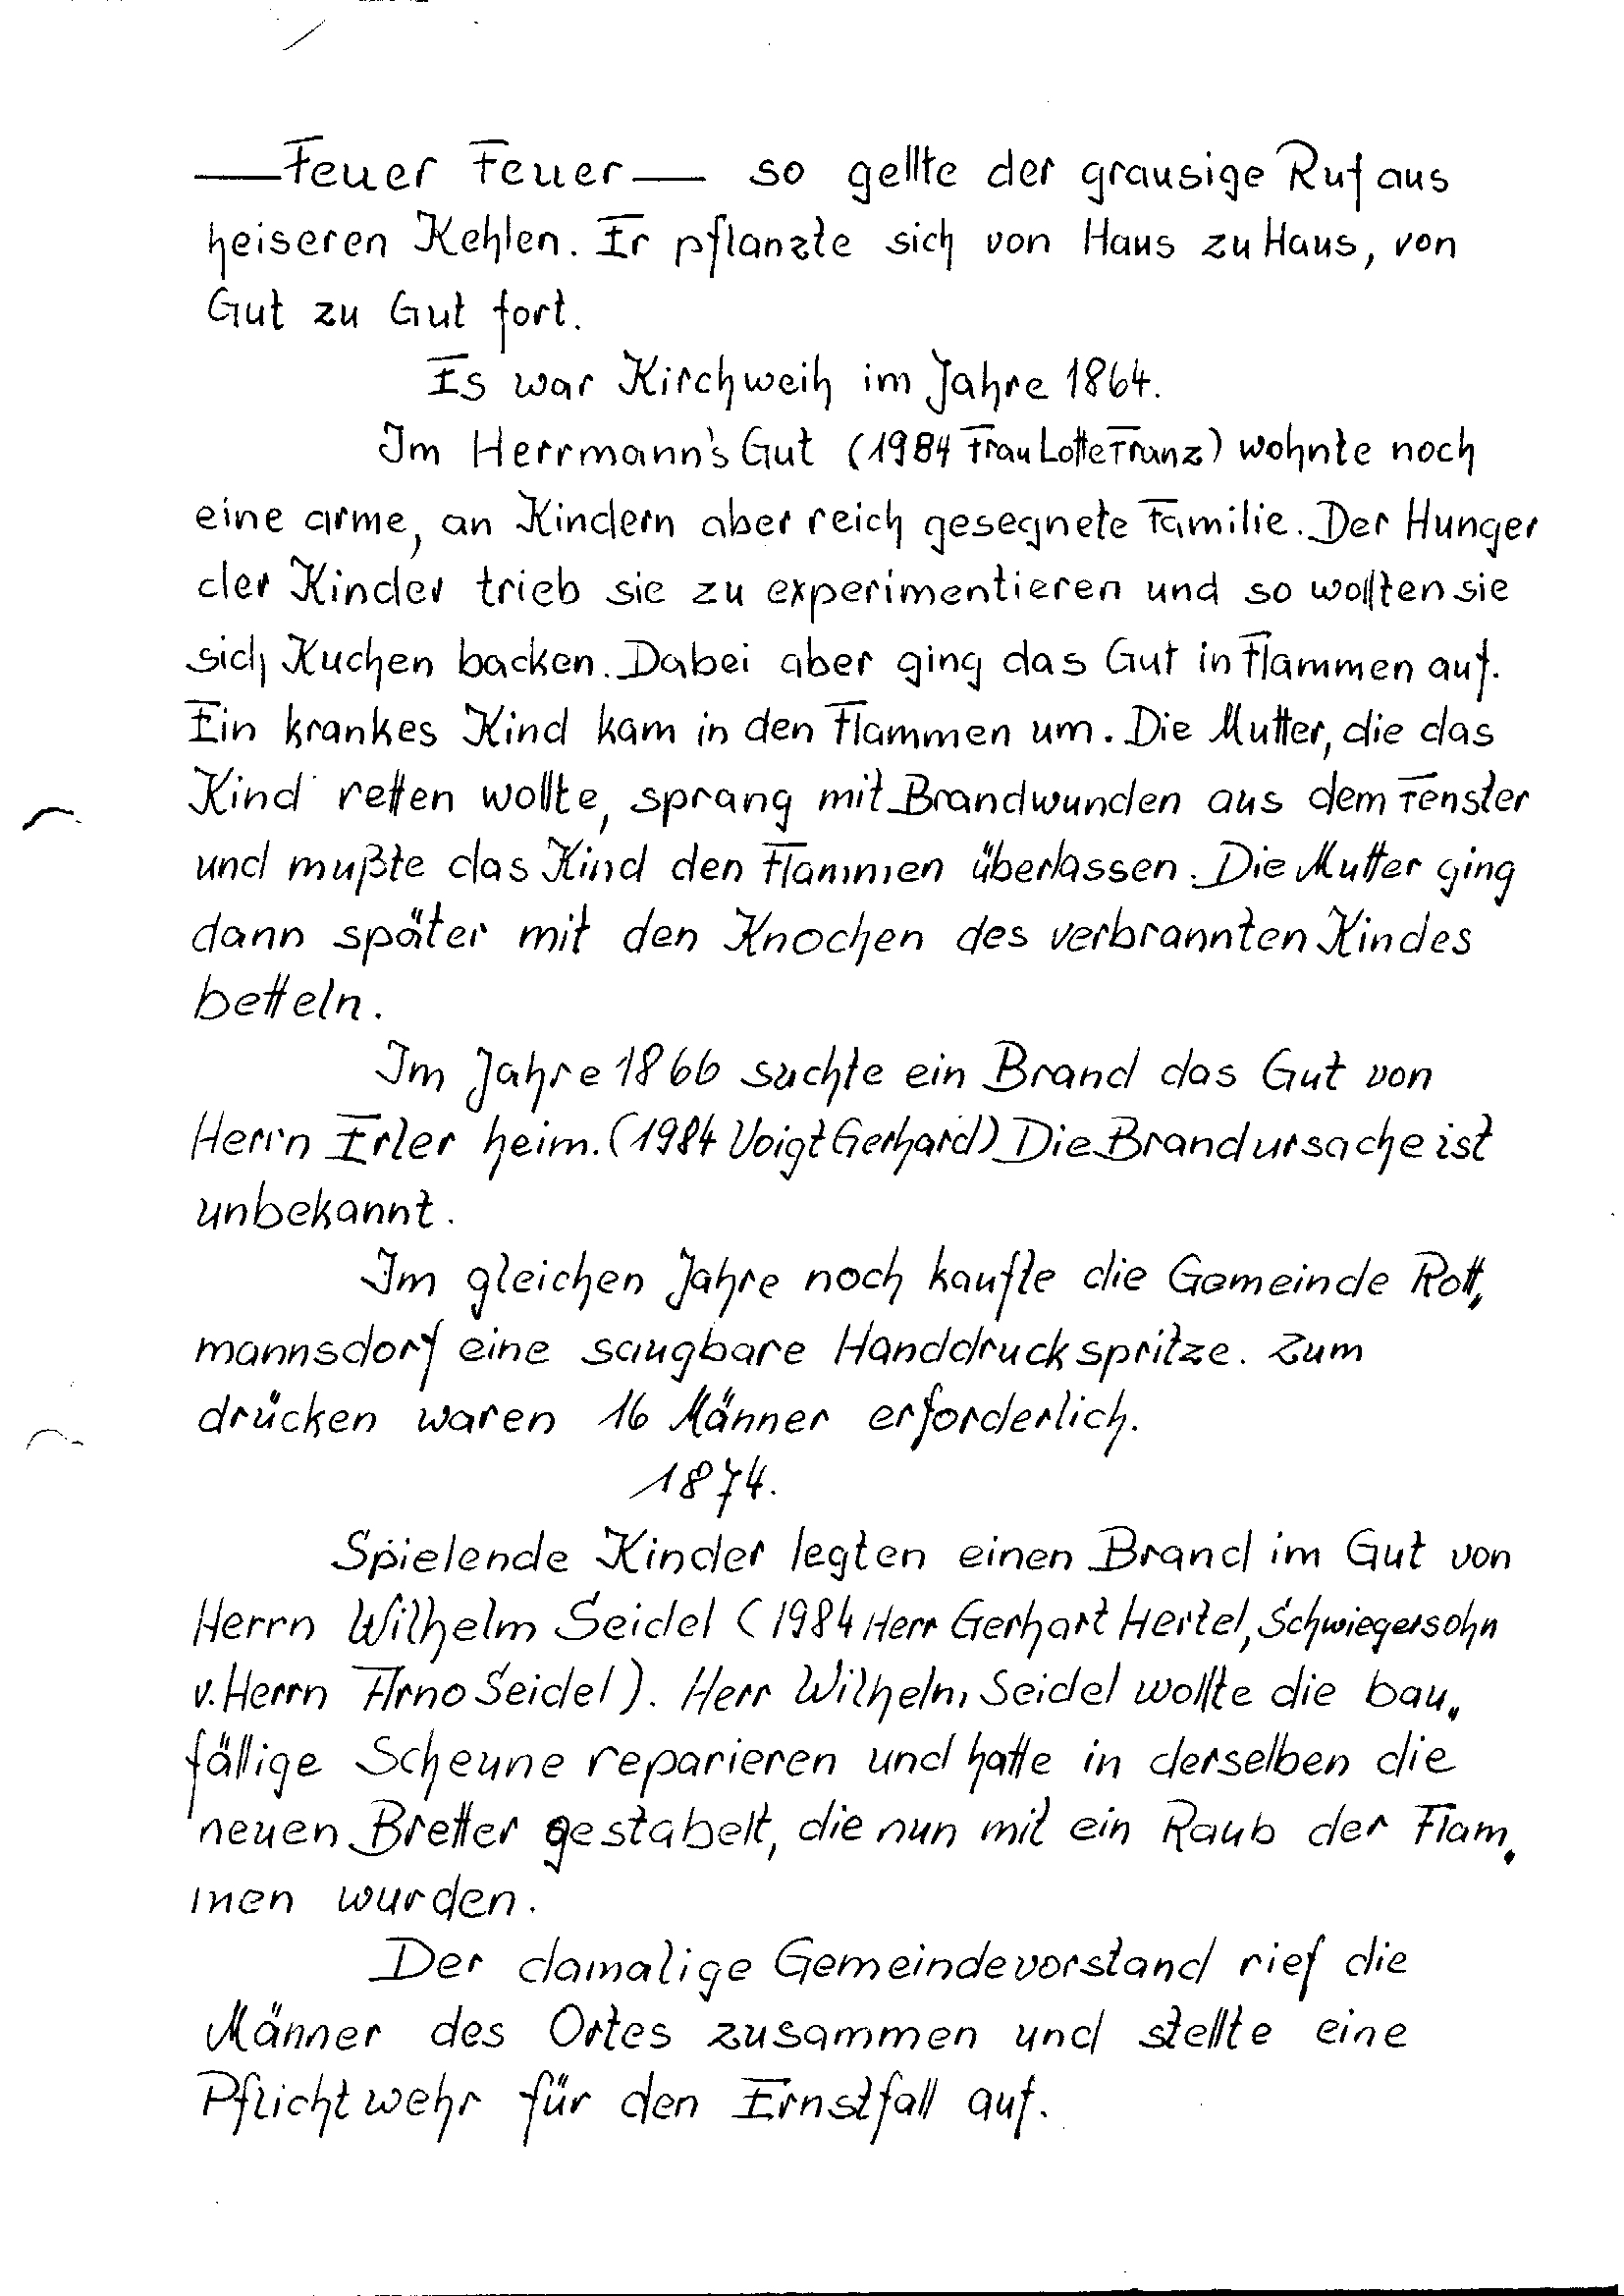 — Feuer Feuer — so gellte der grausige Ruf aus
heiseren Kehlen. Er pflanzte sich von Haus zu Haus, von
Gut zu Gut fort.
Es war Kirchweih im Jahre 1864.
Im Herrmann's Gut (1984 Frau Lotte Franz) wohnte noch
eine arme, an Kindern aber reich gesegnete Familie. Der Hunger
der Kinder trieb sie zu experimentieren und so wollten sie
sich Kuchen backen. Dabei aber ging das Gut in Flammen auf.
Ein krankes Kind kam in den Flammen um. Die Mutter, die das
Kind retten wollte, sprang mit Brandwunden aus dem Fenster
und mußte das Kind den Flammen überlassen. Die Mutter ging
dann später mit den Knochen des verbrannten Kindes
betteln.
Im Jahre 1866 suchte ein Brand das Gut von
Herrn Erler heim. (1984 Voigt Gerhard) Die Brandursache ist
unbekannt.
Im gleichen Jahre noch kaufte die Gemeinde Rott„
mannsdorf eine saugbare Handdruckspritze. Zum
drücken waren 16 Männer erforderlich.
1874.
Spielende Kinder legten einen Brand im Gut von
Herrn Wilhelm Seidel (1984 Herr Gerhart Hertel, Schwiegersohn
v. Herrn Arno Seidel). Herr Wilhelm Seidel wollte die bau„
fällige Scheune reparieren und hatte in derselben die
neuen Bretter gestabelt, die nun mit ein Raub der Flam„
men wurden.
Der damalige Gemeindevorstand rief die
Männer des Ortes zusammen und stellte eine
Pflichtwehr für den Ernstfall auf.